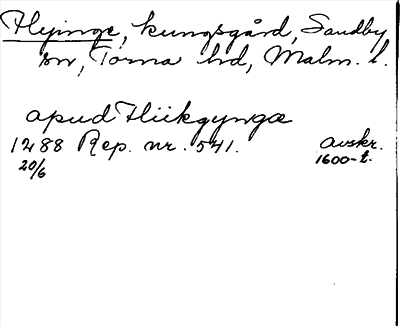 Flyinge, kungsgård, Sandby
sn, Torna hd, Malm. l.
apud Fliikgyngæ
1288 Rep. nr. 541. avskr.
20/6 1600-t.